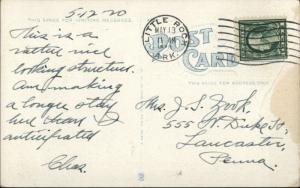 5/12 20
THIS SPACE FOR WRITING MESSAGES.
This is a
rather nice
looking structure.
Am making
a longer stay
here than I
anticipated
Chas.
LITTLE ROCK
MAY 13
ARK.
POST
CARD
THIS SPACE FOR ADDRESS ONLY.
Mrs. J. S. Zook.
555 W. Duke St.,
Lancaster,
Penna.